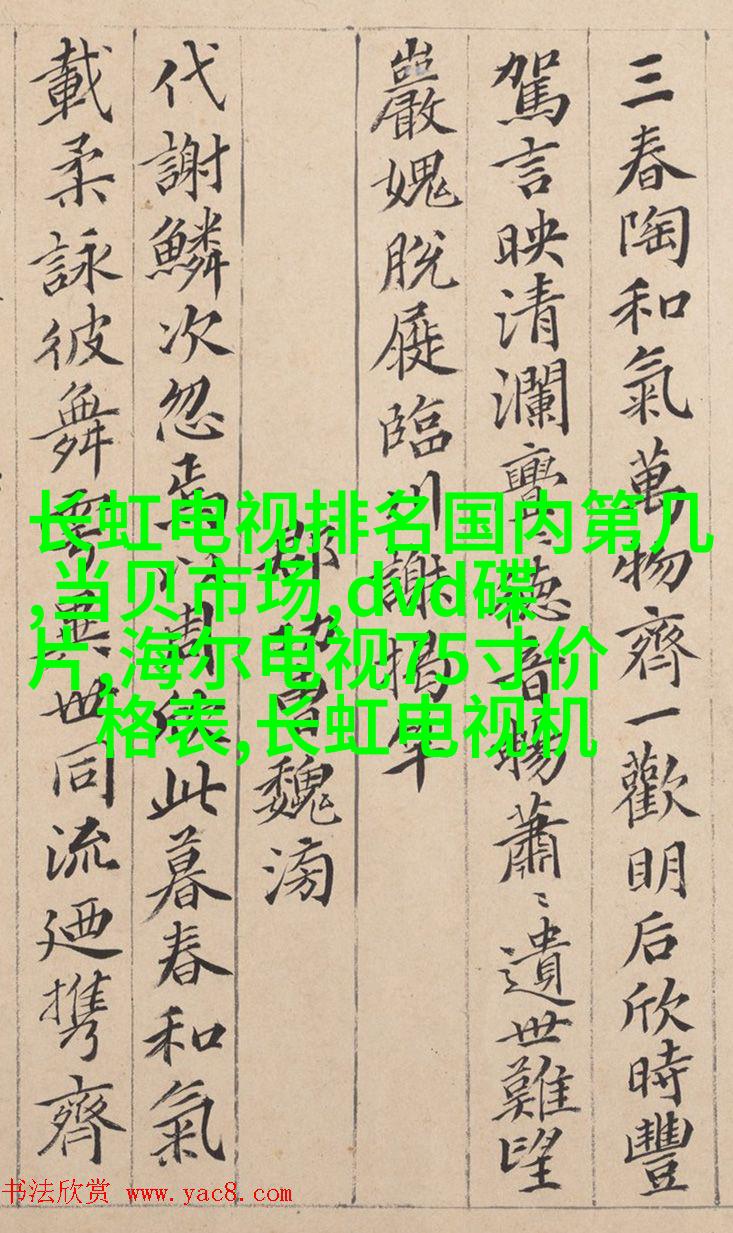 三春陶和氣萬物齊一歡明后欣時豐
駕言映清瀾亹〻德音暢蕭〻遺世難望
巖愧脫屣臨川謝揭竿
郡功曹魏滂
代謝鱗次忽焉以周欣此暮春和氣
載柔詠彼舞雩異世同流迺携齊
长虹电视排名国内第几
,当贝市场,dvd碟
片,海尔电视75寸价
格表,长虹电视机
书法欣赏 www.yac8.com